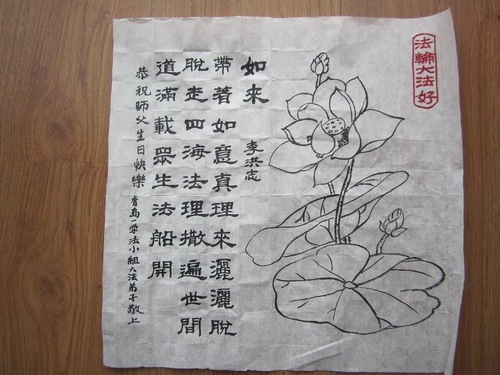 法輪大法好
如来
李洪志
帶着如意真理来灑灑脫
脫走四海法理撒遍世間
道滿載眾生法船開
恭祝師父生日快樂
青島一学法小組大法弟子敬上